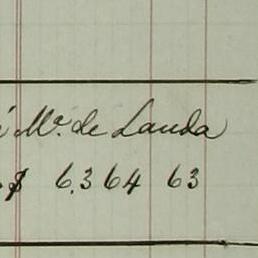 é Ma. de Landa
$ 6,364 63